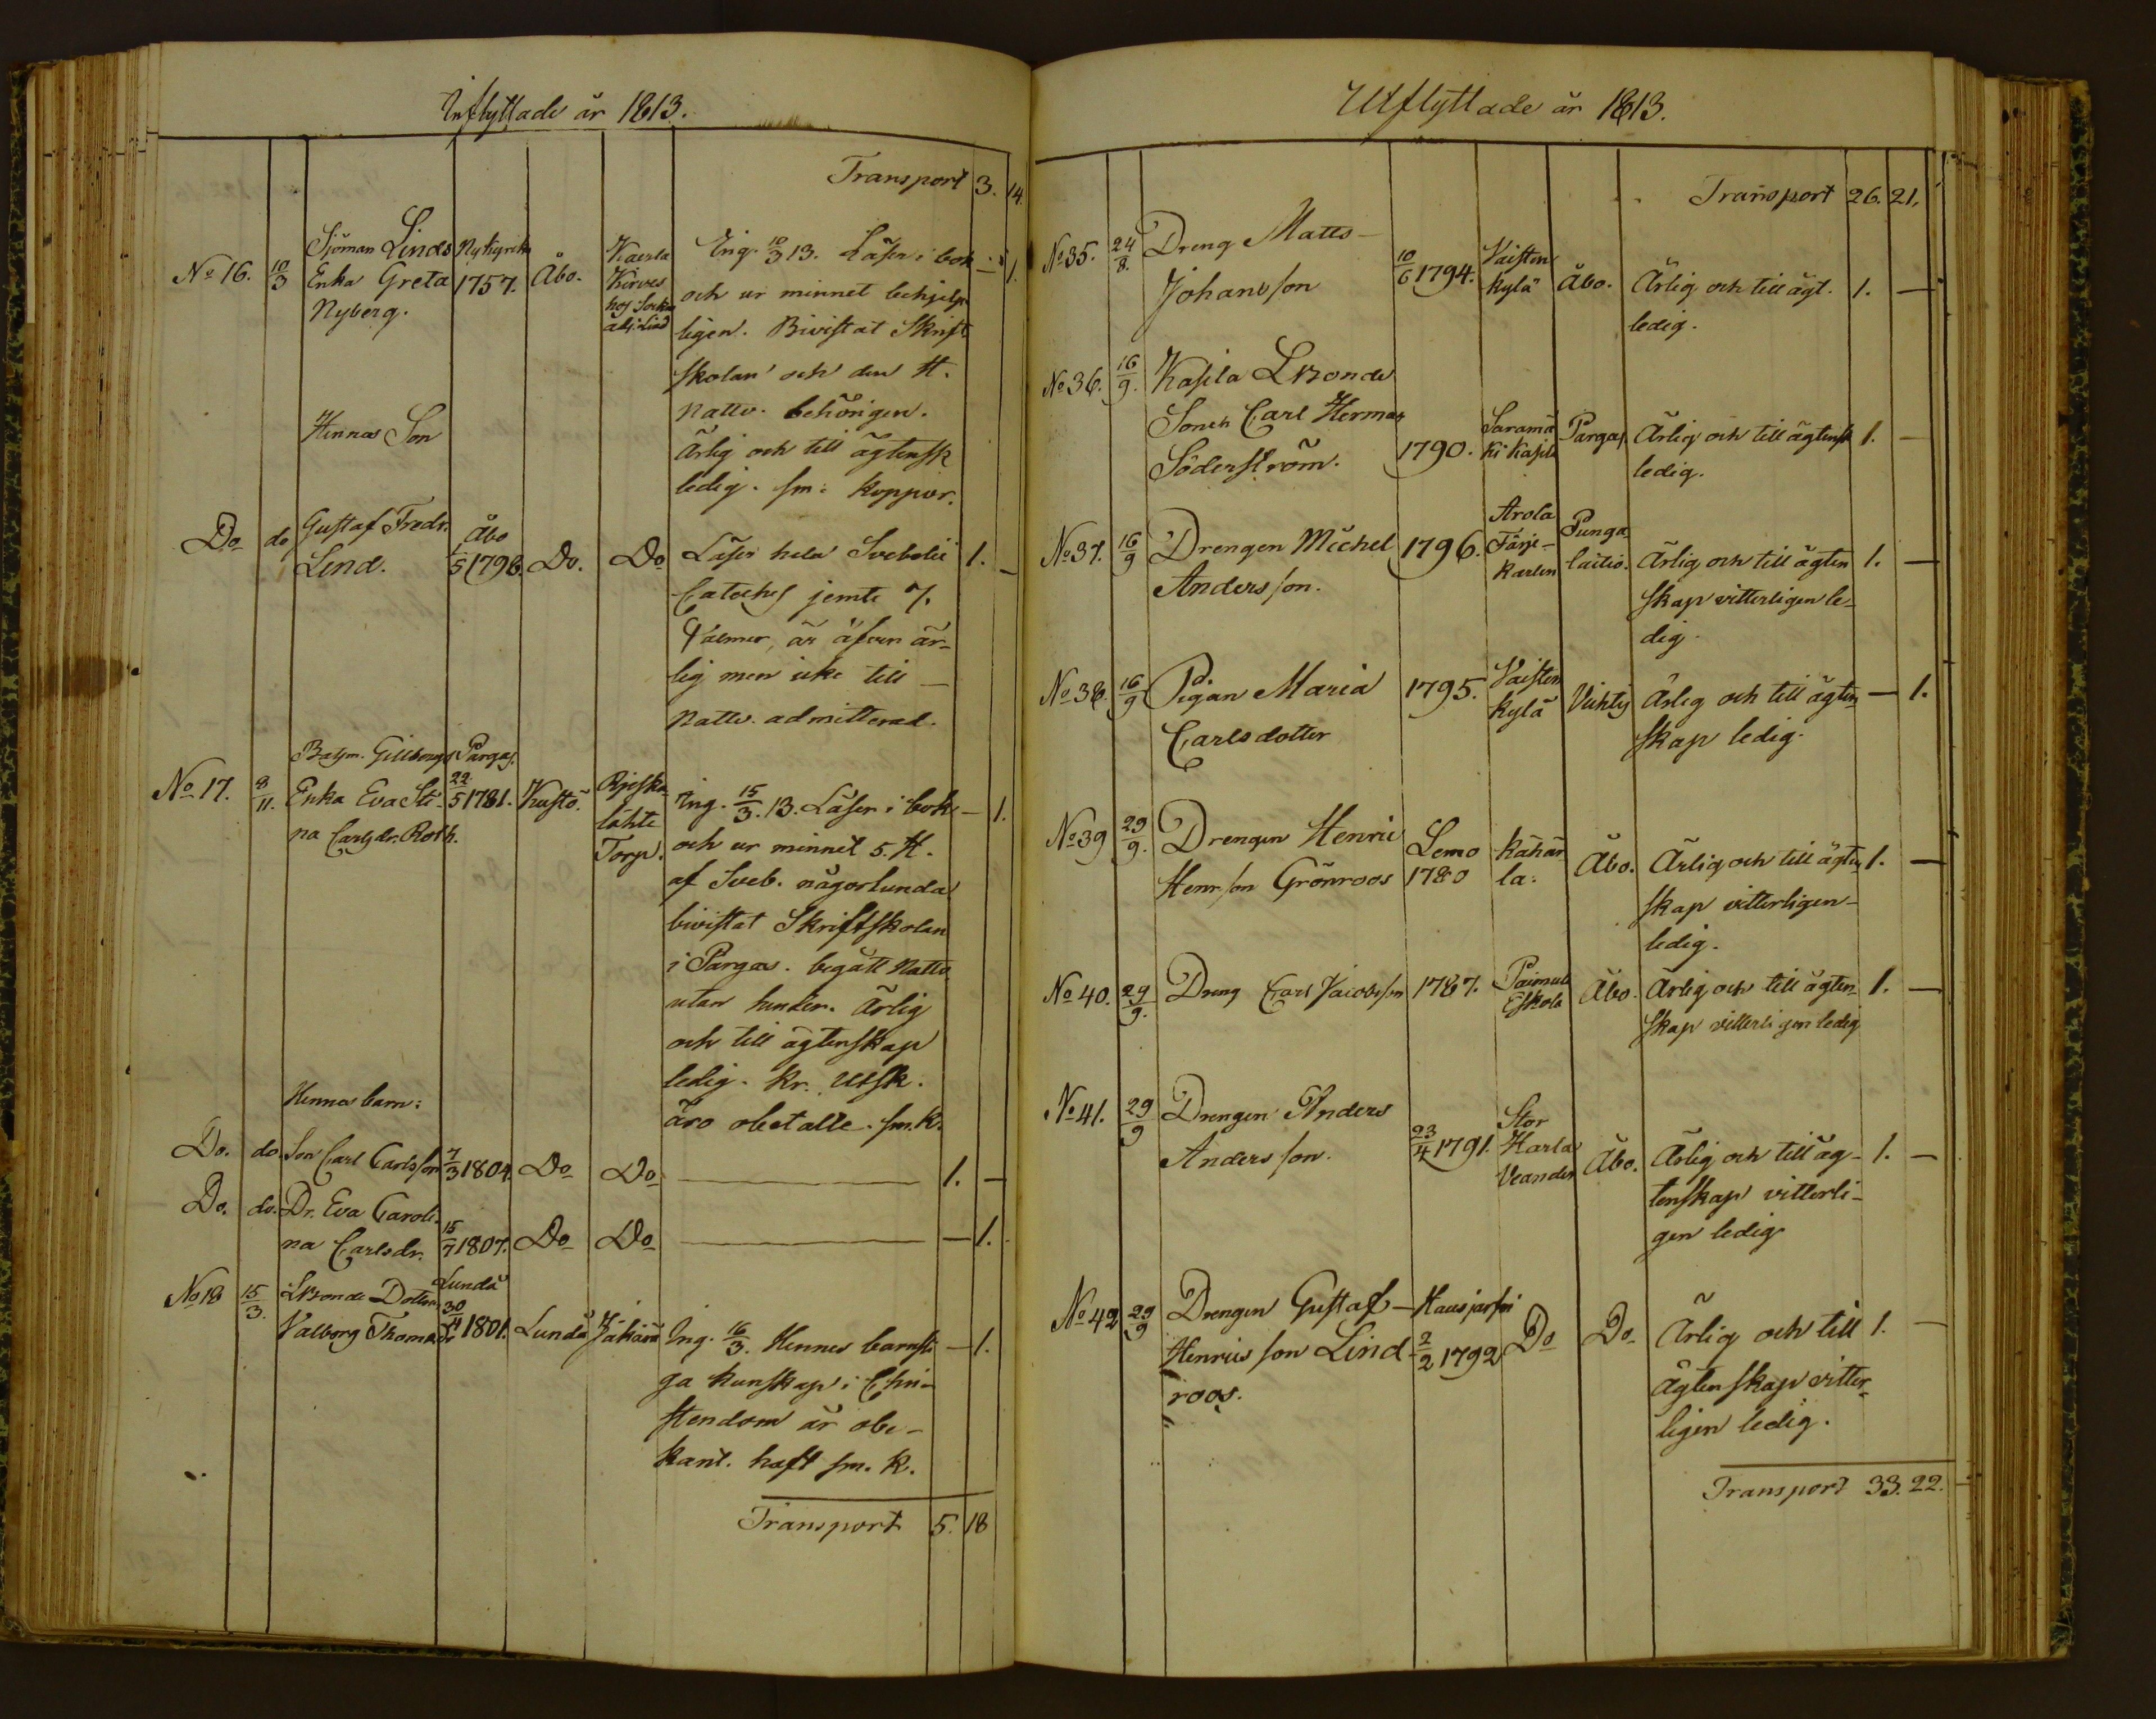 Inflyttade år 1813.
Transport 3. 14.
No 16. 10/3 Sjöman Linds Enka Greta Nyberg. Nykyrka 1757. Åbo. Kaerla Kirves hos Sockn
Ing. 10/3 13. Läser i bok — 1.
och ur minnet behjelp
ligen. Bivistat Skrift
skolan och den H.
Nattv. behörigen.
Ärlig och till ägtensk
ledig. sm: koppor.
Hennes Son
Do do Gustaf Fredr. Lind. Åbo 1/5 1798. Do. Do Läser hela Svebelii 1. —
Cateches jemte 7.
Psalmer, är äfven är-
lig men icke till —
Nattv. admitterad.
No 17. 8/11. Enka Eva Sti-
na Carlsdr. Roth. Pargas. 22/5 1781. Kustö. lahti Torp. Ing. 15/3. 13. Läser i bok — 1.
och ur minnet 5. H.
af Sveb. någorlunda
bivistat Skriftskolan
i Pargas. begått Nattv.
utan hinder. Ärlig
och till ägtenskap
ledig. Kr. Utsk.
äro obetalte. sm. K.
Hennes barn:
Do. do. Son Carl Carlsson 7/3 1804. Do Do — 1. —
Do. do. Dr. Eva Caroli-
na Carlsdr. 15/7 1807. Do Do — — 1.
No 18 15/3. Dotter
Valborg Thomædr Lundå 30/4 1801. Lundå Ing. 16/3. Hennes barnsli — 1.
ga kunskap i Chri-
stendom är obe-
kant. haft sm. K.
Transport 5. 18
Utflyttade år 1813.
Transport 26. 21.
No 35. 24/8. Dreng Matts
Johansson 10/6 1794. Vaisten
kylä Åbo. Ärlig och till ägt. 1. —
ledig.
No 36. 16/9. Kasila
Sonen Carl Herman
Söderström. 1790. Saramä
ki Kasila Pargas Ärlig och till ägtensk 1. —
ledig.
No 37. 16/9 Drengen Michel
Andersson. 1796. Arola
Färje-
karlen Punga
laitio. Ärlig och till ägten 1. —
skap vitterligen le-
dig.
No 38. 16/9 Pigan Maria
Carlsdotter 1795. Vaisten
kylä Vichtis Ärlig och till ägten — 1.
skap ledig.
No 39 29/9. Drengen Henric
Henrsson Grönroos Lemo
1780 Kähär
la. Åbo. Ärlig och till ägten 1. —
skap vitterligen
ledig.
No 40. 29/9. Dreng Carl Jacobsson 1787. Paimela
Eskola Åbo. Ärlig och till ägten- 1. —
skap vitterligen ledig
No 41. 29/9 Drengen Anders
Andersson. 23/4 1791. Stor
Harla Åbo. Ärlig och till äg- 1. —
tenskap vitterli-
gen ledig
No 42 29/9 Drengen Gustaf
Henricsson Lind-
roos. Hausjärfvi
2/2 1792 Do Do Ärlig och till 1. —
ägtenskap vitter-
ligen ledig.
Transport 33. 22.